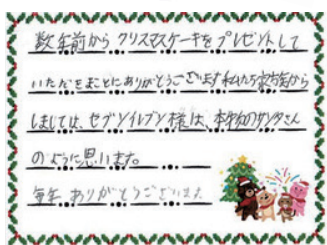 数年前から クリスマスケーキを プレゼントして
いただきまことにありがとうございます 私たち家族から
しましては、セブンイレブン様は、本物のサンタさん
のように思います。
毎年 ありがとうございます